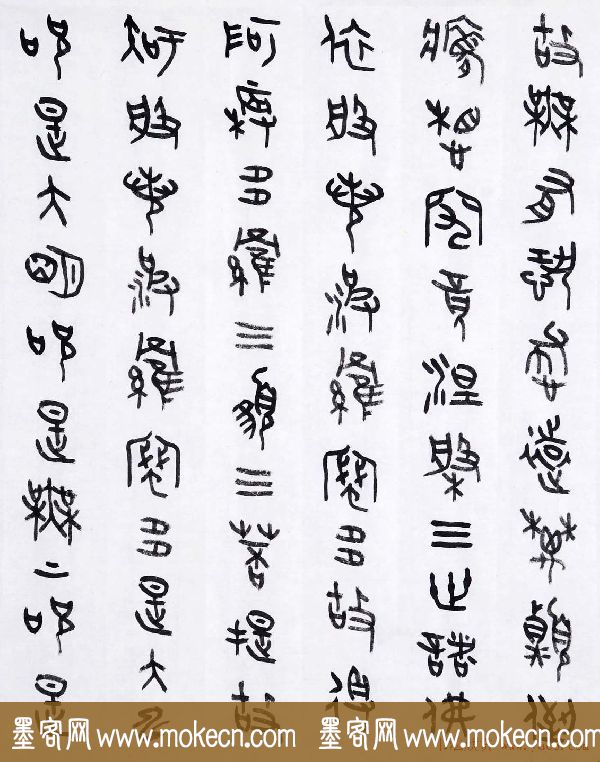 故無有恐怖遠離顛倒
夢想究竟涅槃三世諸佛
依般若波羅蜜多故得
阿耨多羅三藐三菩提故
知般若波羅蜜多是大神
咒是大明咒是無上咒是
墨客网 www.mokecn.com 墨客网 www.mokecn.com